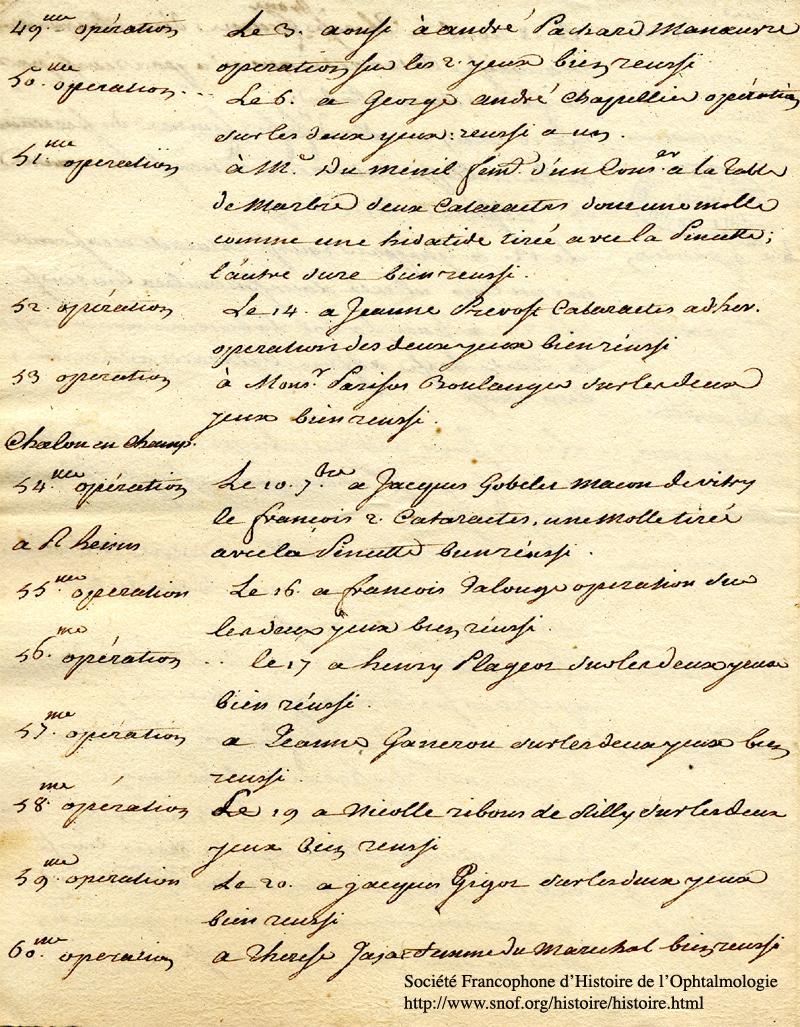 49.me opération Le 3. aoust à andré Pachard Manœuvre
operation sur les 2. yeux bien reussi
50.me operation... Le 6. a George andré Chapellier opération
sur les deux yeux: reussi a un.
51.me operation à Me. Du ménil fem. d'un Conser a la Table
de Marbre deux Cataractes dont une molle
comme une hidatide tirée avec la Pincette;
l'autre dure bien reussi.
52. opération Le 14. a Jeanne Prevost Cataractes adher.
operation des deux yeux bien réussi
53 opération à Monsr. Boulanger sur les deux
yeux bien reussi.
Chalon en Champ.
54.me opération Le 10. 7bre a Jacques Gobelet Macon de vitry
le francois 2. Cataractes, une Molle tirée
a Rheims avec la Pincette bien réussi.
55.me operation Le 16. a francois operation sur
les deux yeux bien réussi.
56.me opération .. le 17 a henry Plageot sur les deux yeux
bien réussi.
57.me opération a Jeanne Ganeron sur les deux yeux bien
reussi.
58.me opération Le 19 a Nicolle de Rilly sur les deux
yeux bien reussi
59.me opération Le 20. a jacques Gigot sur les deux yeux
bien reussi
60.me operation a Therese femme du Marechal bien reussi
Société Francophone d'Histoire de l'Ophtalmologie
http://www.snof.org/histoire/histoire.html